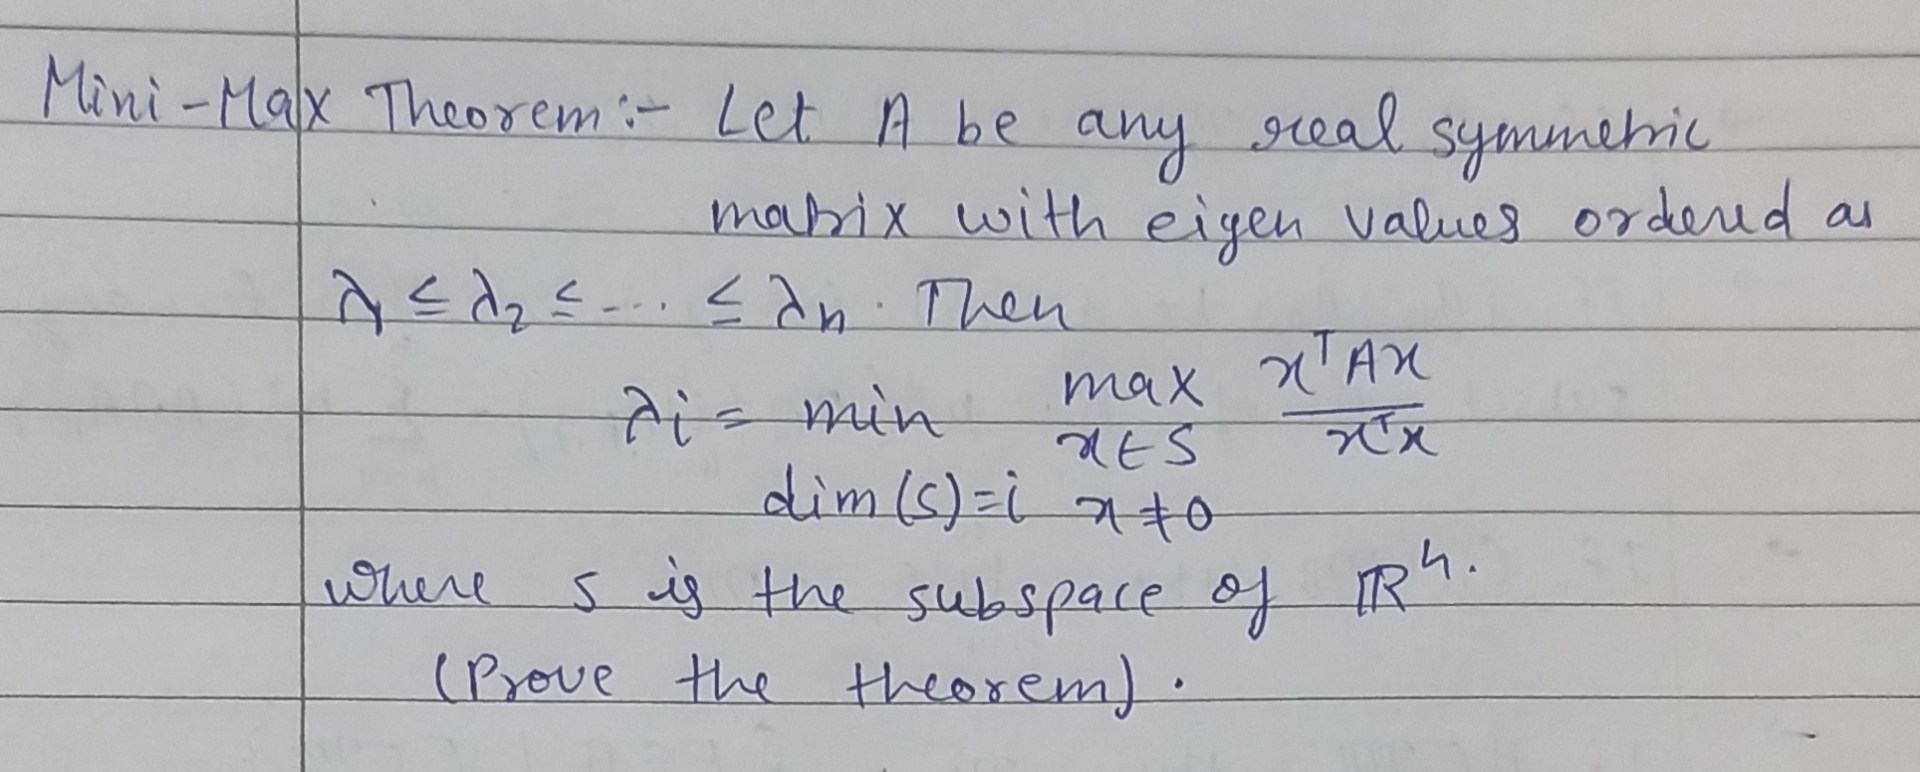 Mini-Max Theorem:- Let A be any real symmetric
matrix with eigen values ordered as
λ₁ ≤ λ₂ ≤ -... ≤ λn. Then
λi = min max xᵀAx / xᵀx
x∈S
dim(S)=i x≠0
where S is the subspace of ℝⁿ.
(Prove the theorem).